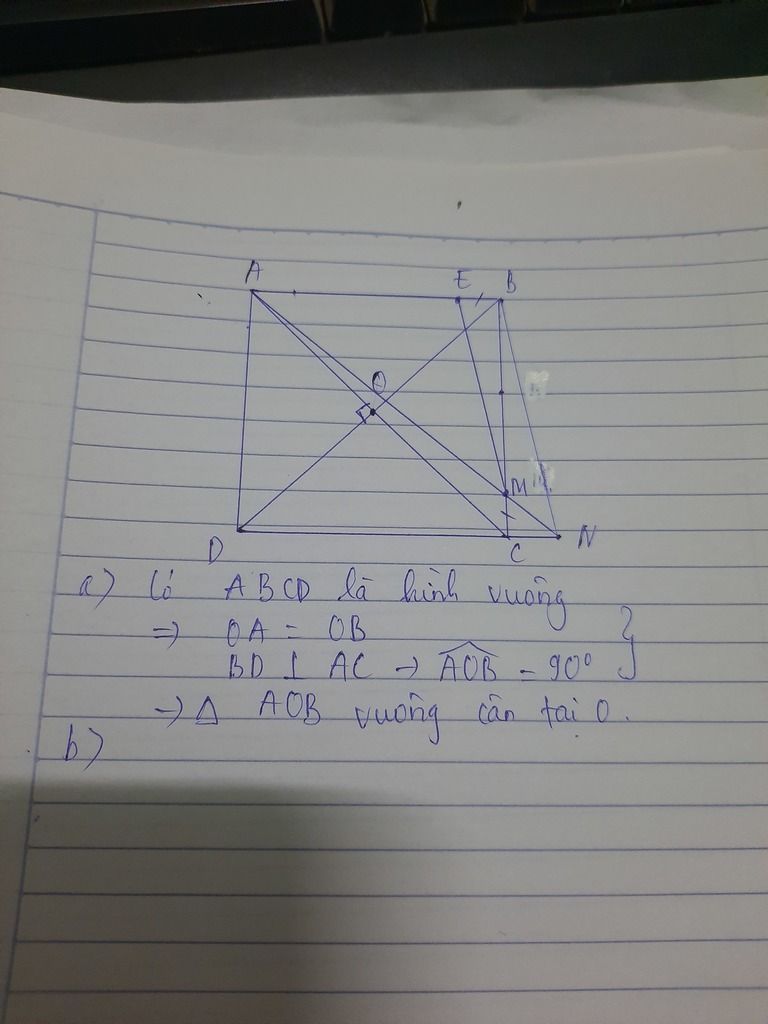 A E B
O
M
D C N
a) Có ABCD là hình vuông
=> OA = OB
BD ⊥ AC → AOB = 90°
→ Δ AOB vuông cân tại O.
b)